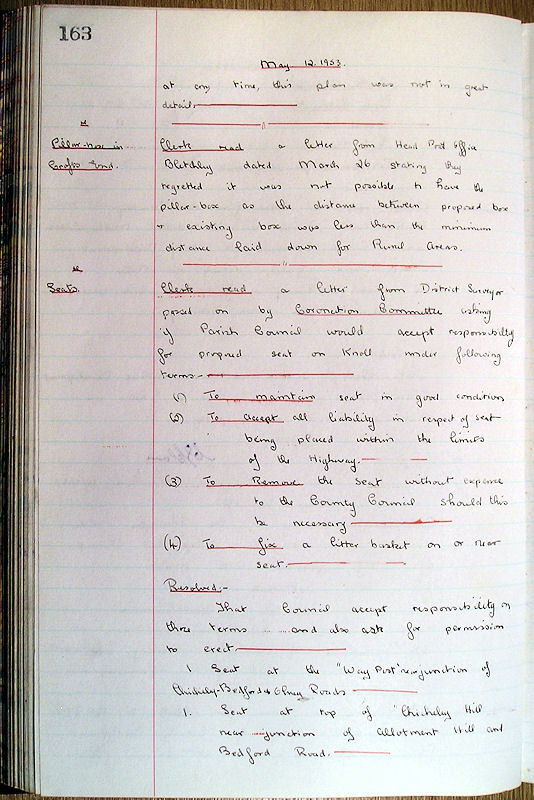 163
May 12. 1953.
at any time, this plan was not in great
detail.
Pillar-box in
Crofts End.
Clerk read a letter from Head Post Office
Bletchley dated March 26 stating they
regretted it was not possible to have the
pillar-box as the distance between proposed box
& existing box was less than the minimum
distance laid down for Rural Areas.
Seats.
Clerk read a letter from District Surveyor
passed on by Coronation Committee asking
if Parish Council would accept responsibility
for proposed seat on Knoll under following
terms:-
(1) To maintain seat in good condition
(2) To accept all liability in respect of seat
being placed within the limits
of the Highway.
(3) To Remove the seat without expense
to the County Council should this
be necessary
(4) To fix a litter basket on or near
seat.
Resolved:-
That Council accept responsibility on
these terms and also ask for permission
to erect
1 Seat at the "Way Post" near junction of
Chicheley-Bedford & Olney Roads
1. Seat at top of "Chicheley Hill
near junction of Allotment Hill and
Bedford Road.